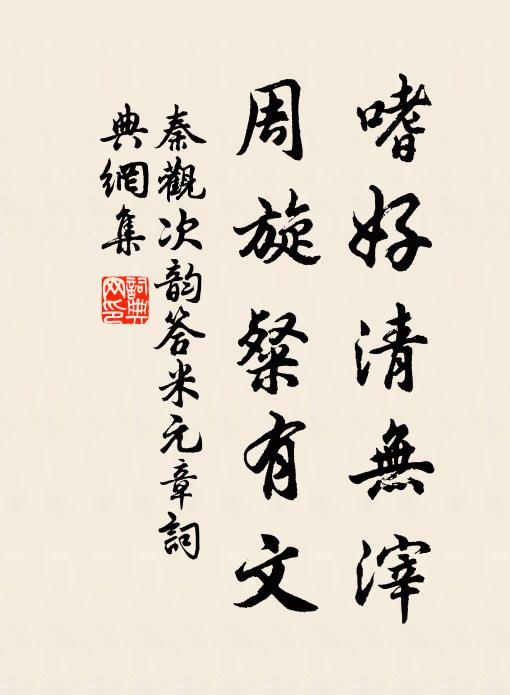 嗜好清無滓
周旋粲有文
秦觀次韵答米元章詞
典網集
詞典
网印